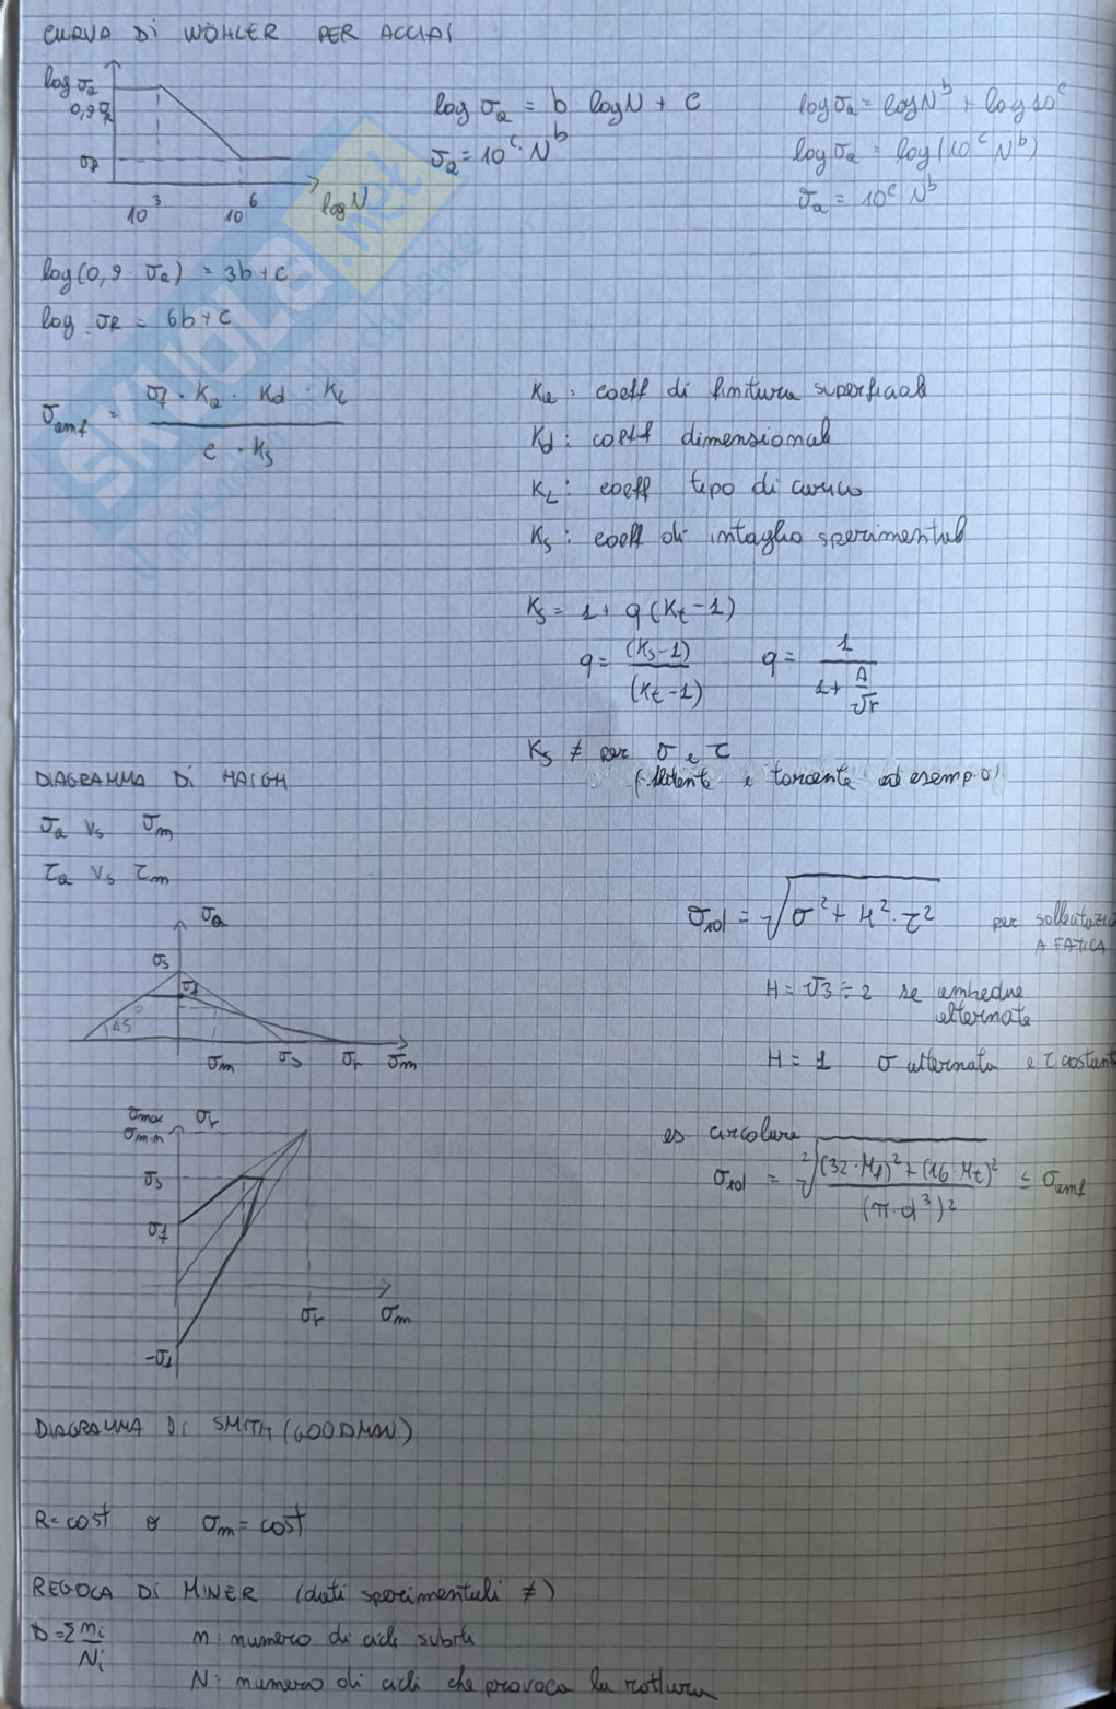 CURVA Di WÖHLER PER ACCIAI
log σa
0,9 σr
σf
10³ 10⁶ log N
log σa = b log N + c
σa = 10^c · N^b
log σa = log N^b + log 10^c
log σa = log (10^c N^b)
σa = 10^c N^b
log (0,9 · σr) = 3b + c
log σf = 6b + c
σamf = σf · Ka · Kd · KL / c · Ks
Ka : coeff di finitura superficiale
Kd : coeff dimensionale
KL : coeff tipo di carico
Ks : coeff di intaglio sperimentale
Ks = 1 + q (Kt - 1)
q = (Ks - 1) / (Kt - 1) q = 1 / 1 + A/√r
Ks ≠ per σ e τ
(flettente e torcente ad esempio)
DIAGRAMMA Di HAIGH
σa vs σm
τa vs τm
σa
σs
σf
45°
σm σs σr σm
σid = √σ² + H² · τ² per sollecitazio
A FATICA
H = √3 ÷ 2 se ambedue
alternate
H = 1 σ alternata e τ costant
σmax
σmin
σr
σs
σf
σr σm
-σf
es circolare
σid = ²√(32 · Mf)² + (16 · Mt)² / (π · d³)² ≤ σamf
DIAGRAMMA DI SMITH (GOODMAN)
R = cost o σm = cost
REGOLA Di MINER (dati sperimentali ≠)
D = Σ ni/Ni
n : numero di cicli subiti
N : numero di cicli che provoca la rottura
SKUOLA.net